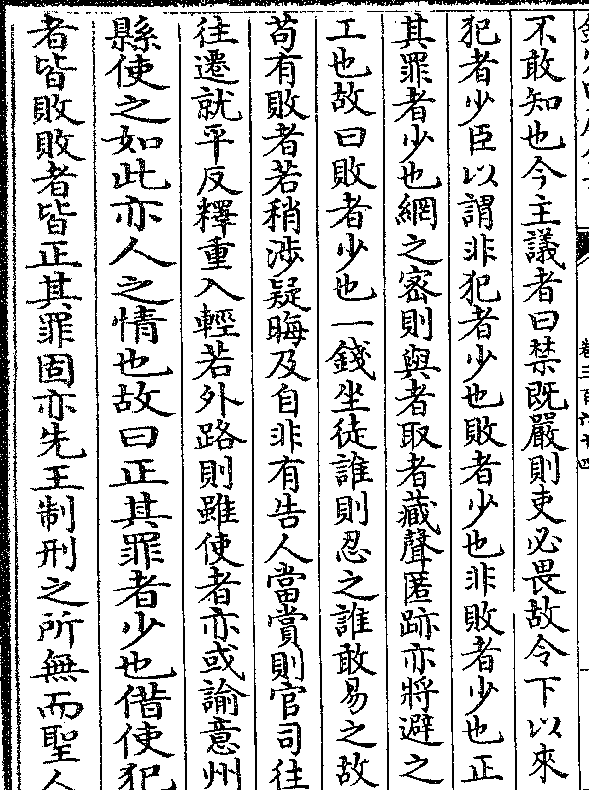 不敢知也今主議者曰禁既嚴則吏必畏故令下以來
犯者少臣以謂非犯者少也敗者少也非敗者少也正
其罪者少也網之密則與者取者藏聲匿跡亦將避之
工也故曰敗者少也一錢坐徒誰則忍之誰敢易之故
苟有敗者若稍涉疑晦及自非有告人當賞則官司往
往遷就平反釋重入輕若外路則雖使者亦或諭意州
縣使之如此亦人之情也故曰正其罪者少也借使犯
者皆敗敗者皆正其罪固亦先王制刑之所無而聖人